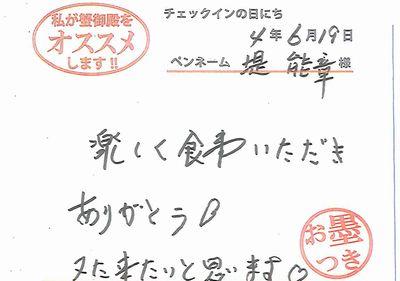 私が蟹御殿を
オススメ
します!!
チェックインの日にち
4年6月19日
ペンネーム 堤 能章 様
楽しく食事いただき
ありがとう
又た来たいと思います♡
お墨
つき